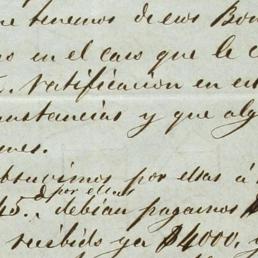 tenemos de esos Bon
en el caso que le c
ratificacion en es
unstancias y que alg
nes.
btuvimos por ellas á
por ellas
45.. debian pagarnos $
recibido ya $4000. y